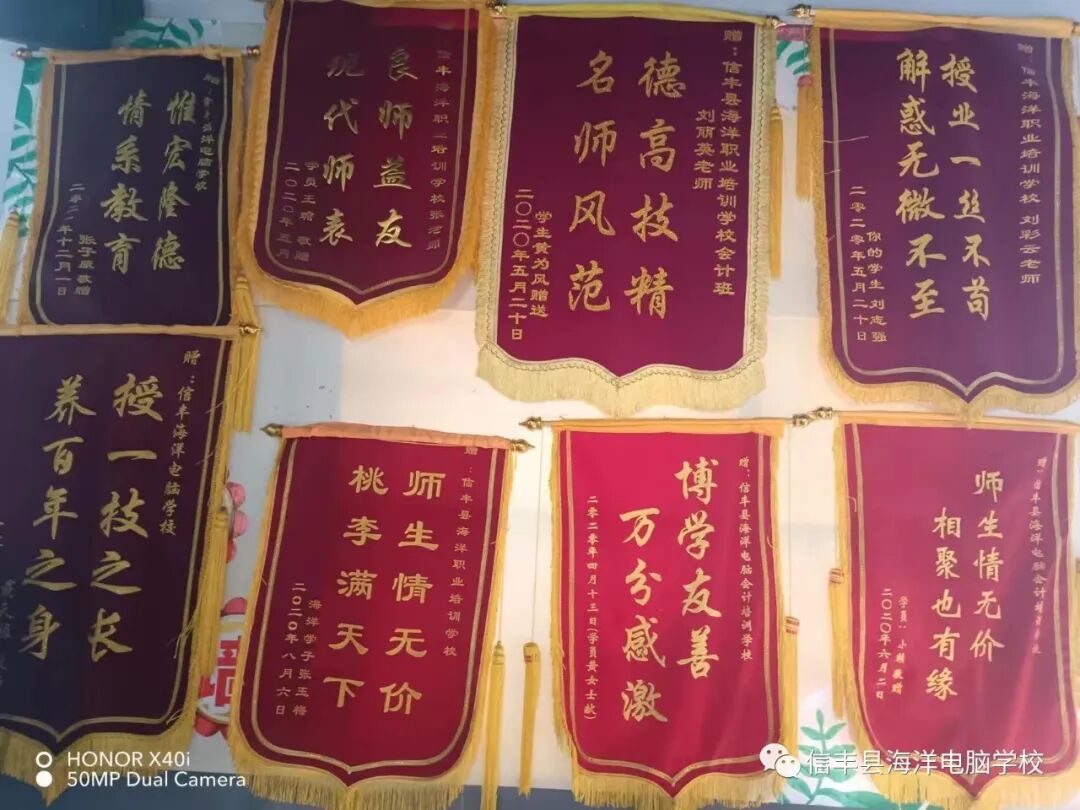 惟宏隆德
情系教育
二零二一年十二月一日
良师益友
现代师表
二〇二〇年三月
赠：信丰县海洋职业培训学校会计班
刘丽英老师
德高技精
名师风范
学生黄为风赠送
二〇二〇年五月二十日
赠：信丰海洋职业培训学校 刘彩云老师
授业一丝不苟
解惑无微不至
你的学生 刘志强
二零二零年五月二十日
赠：信丰海洋电脑学校
授一技之长
养百年之身
赠：信丰县海洋职业培训学校
师生情无价
桃李满天下
海洋学子张玉梅
二〇二〇年八月六日
赠：信丰县海洋电脑会计培训学校
博学友善
万分感激
二零二零年四月十三日(学员黄女士献)
赠：信丰县海洋电脑会计培训学校
师生情无价
相聚也有缘
二〇二〇年六月二日
HONOR X40i
50MP Dual Camera
信丰县海洋电脑学校